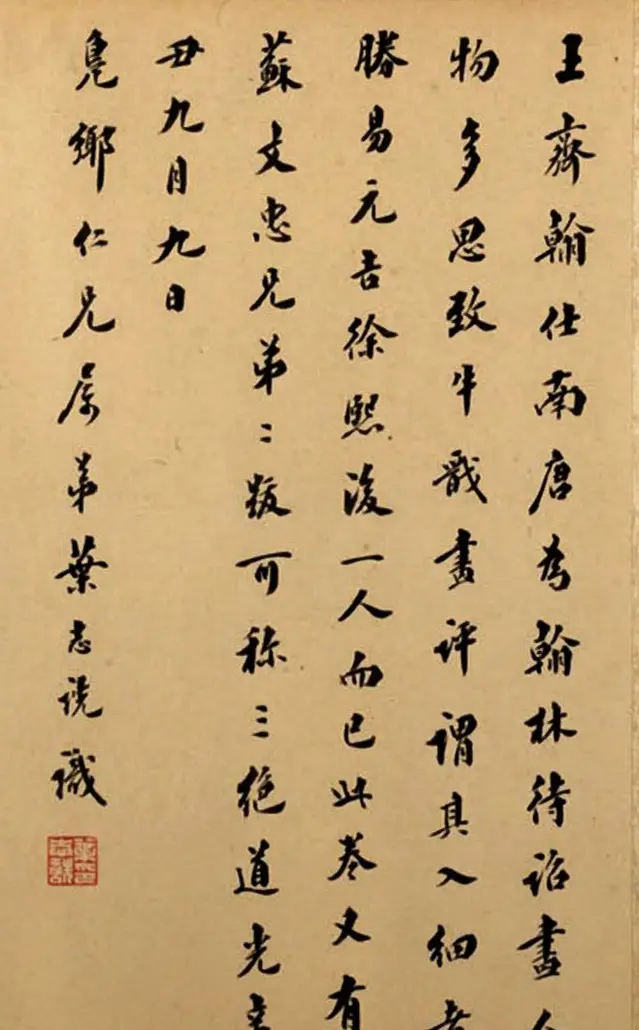 王齋翰仕南唐為翰林待詔畫人
物多思致牛戩畫評謂其入細者
勝易元吉徐熙後一人而已此卷又有
蘇文忠兄弟二跋可称三絶道光辛
丑九月九日
鳧鄉仁兄属弟葉志詵識
葉志詵